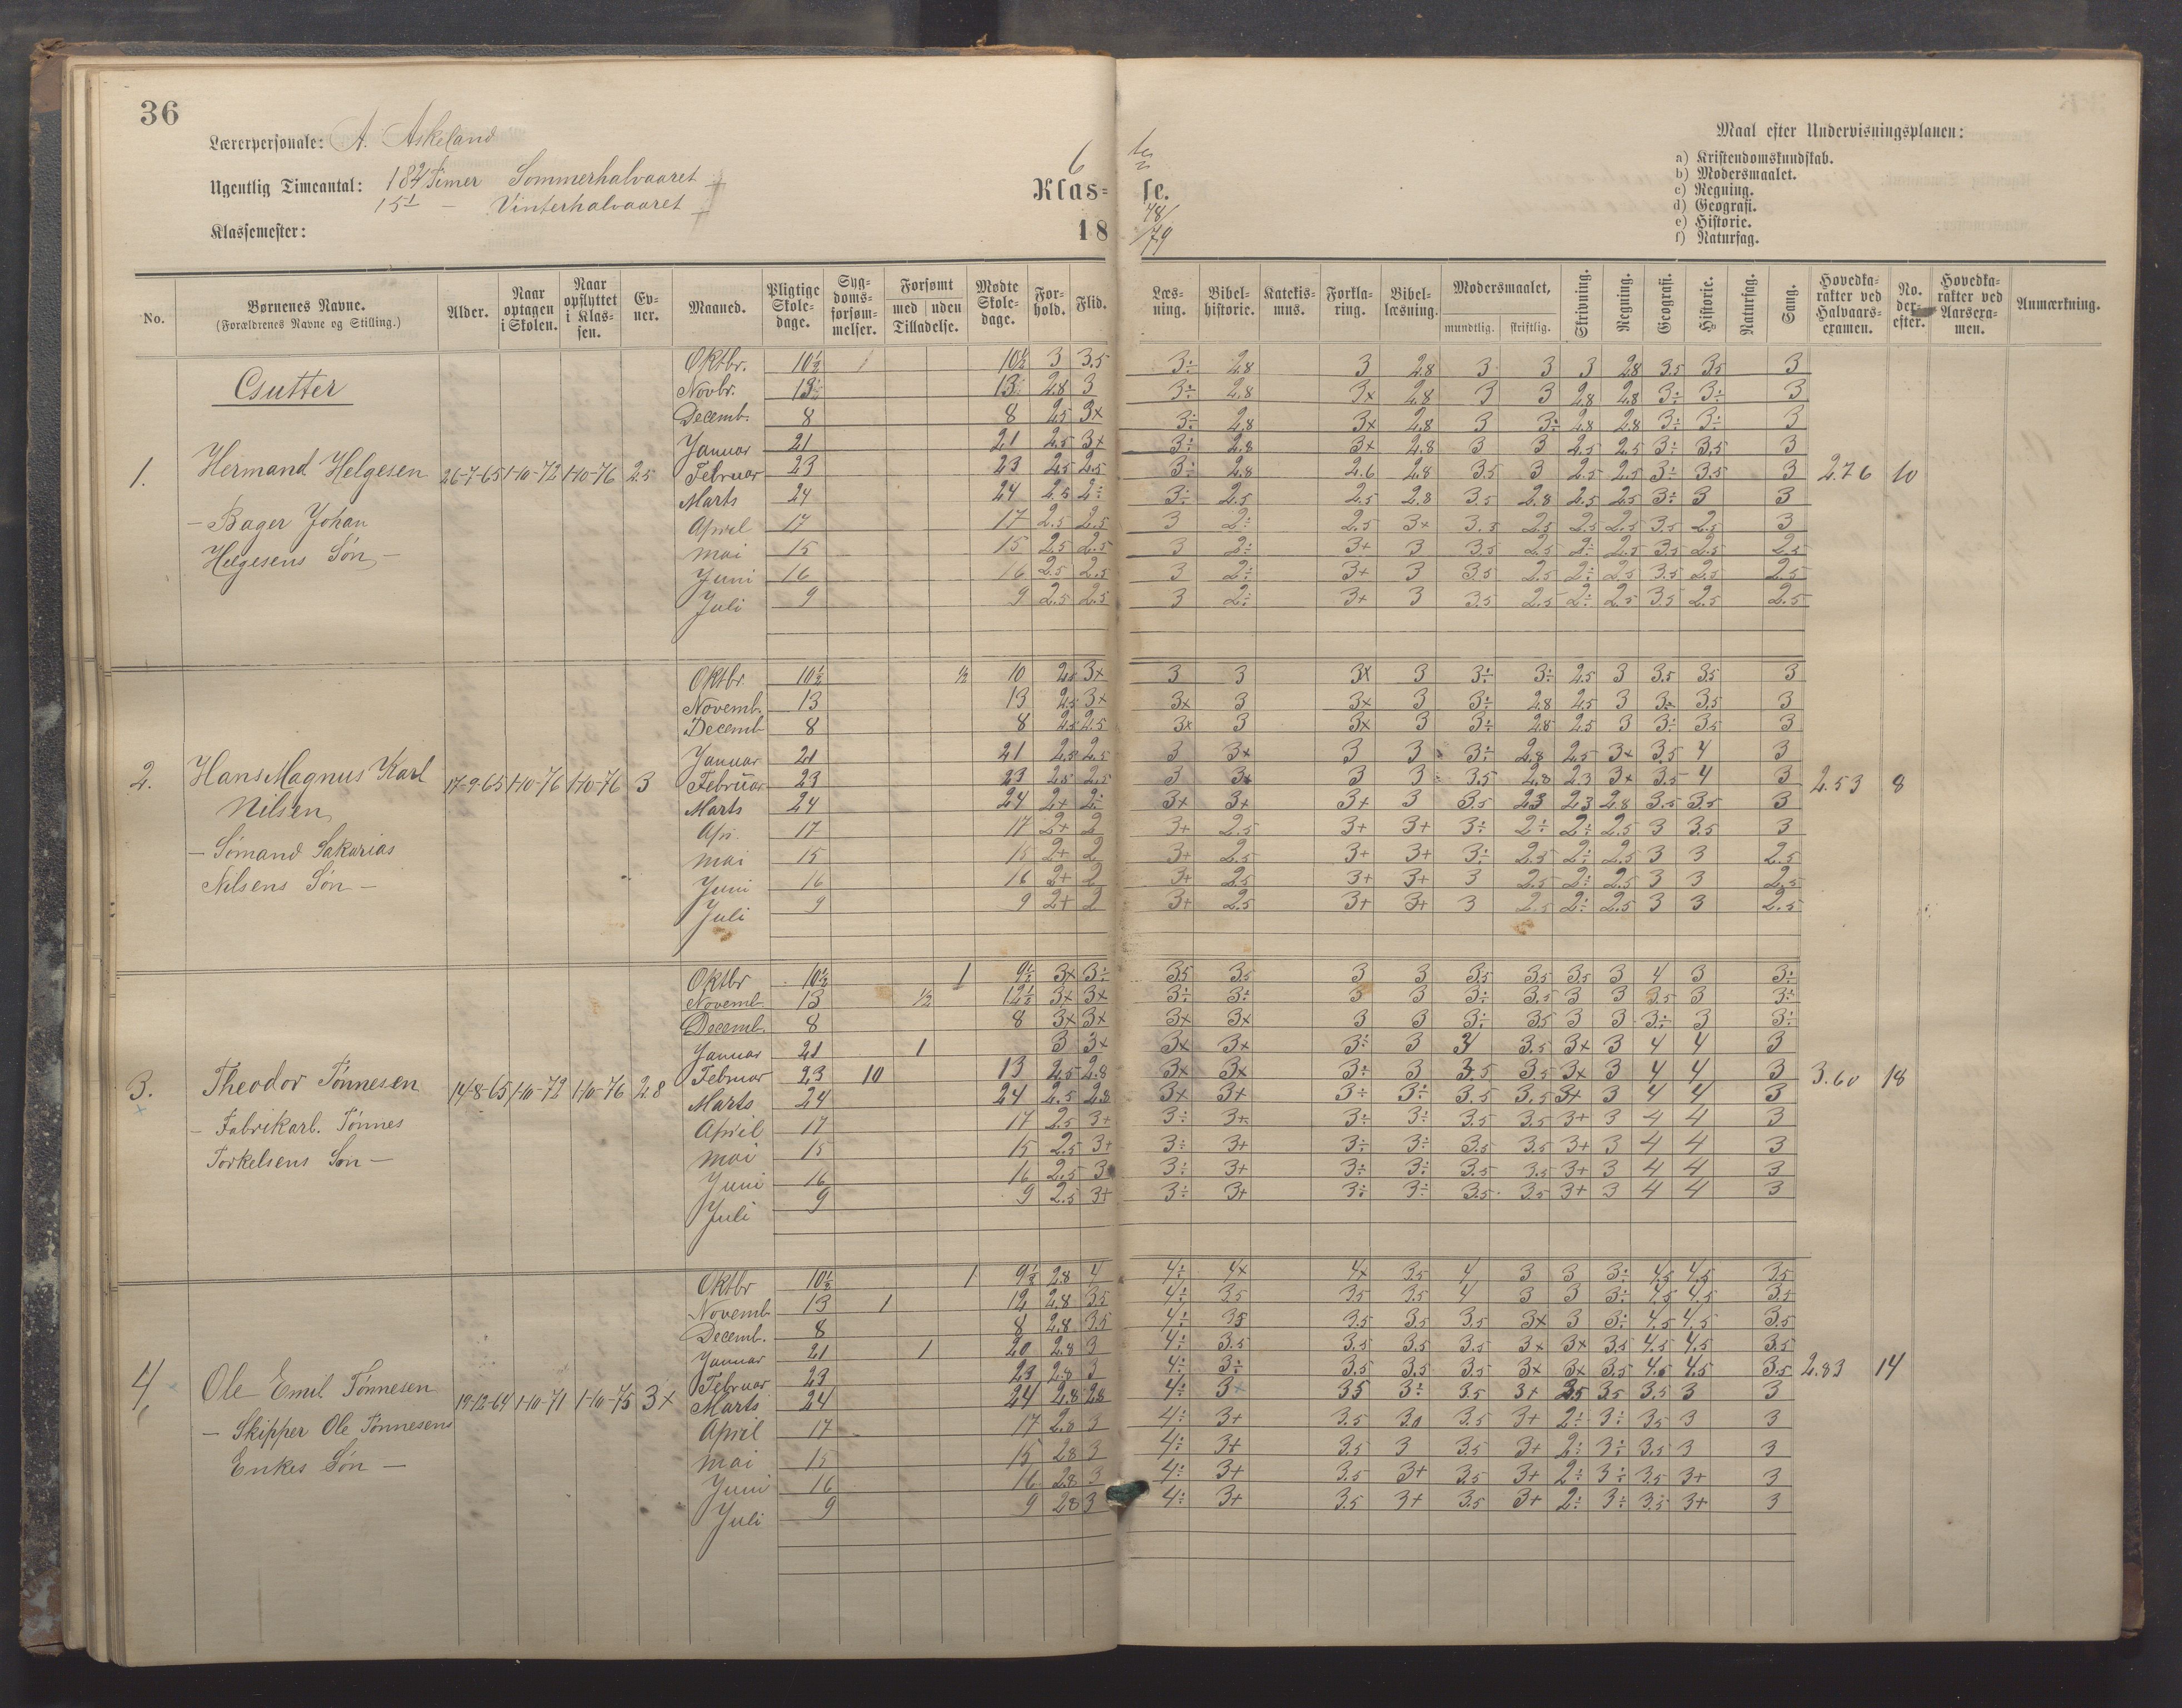 36
Lærerpersonale: A. Askeland
Ugentlig Timeantal: 18 Timer Sommerhalvaaret
15½ — Vinterhalvaaret
Klassemester:
6 te
Klas= se.
18 78/79
Maal efter Undervisningsplanen:
a) Kristendomskundskab.
b) Modersmaalet.
c) Regning.
d) Geografi.
e) Historie.
f) Naturfag.
No. Børnenes Navne. (Forældrenes Navne og Stilling.) Alder. Naar optagen i Skolen. Naar opflyttet i Klassen. Evner. Maaned. Pligtige Skoledage. Sygdomsforsømmelser. Forsømt med uden Tilladelse. Mødte Skoledage. Forhold. Flid. Læsning. Bibelhistorie. Katekismus. Forklaring. Bibellæsning. Modersmaalet, mundtlig. skriftlig. Skrivning. Regning. Geografi. Historie. Naturfag. Sang. Hovedkarakter ved Halvaarsexamen. No. derefter. Hovedkarakter ved Aarsexamen. Anmærkning.
Gutter
1. Hermand Helgesen 26-7-65 1-10-72 1-10-76 2.5 2.76 10
— Bager Johan
Helgesens Søn —
Oktbr. 10½ 1 10½ 3 3.5 3÷ 2.8 3 2.8 3 3 3 2.8 3.5 3.5 3
Novbr. 13 13 2.8 3 3÷ 2.8 3x 2.8 3 3 2.8 2.8 3÷ 3÷ 3
Decemb. 8 8 2.5 3x 3÷ 2.8 3x 2.8 3 3÷ 2.8 2.8 3÷ 3÷ 3
Januar 21 21 2.5 3x 3÷ 2.8 3x 2.8 3 3 2.5 2.5 3÷ 3.5 3
Februar 23 23 2.5 2.5 3÷ 2.8 2.6 2.8 3.5 3 2.5 2.5 3÷ 3.5 3
Marts 24 24 2.5 2÷ 3÷ 2.5 2.5 2.8 3.5 2.8 2.5 2.5 3÷ 3 3
April 17 17 2.5 2.5 3 2÷ 2.5 3x 3.5 2.5 2.5 2.5 3.5 2.5 3
Mai 15 15 2.5 2.5 3 2÷ 3+ 3 3.5 2.5 2÷ 2.5 3.5 2.5 2.5
Juni 16 16 2.5 2.5 3 2÷ 3+ 3 3.5 2.5 2÷ 2.5 3.5 2.5 2.5
Juli 9 9 2.5 2.5 3 2÷ 3+ 3 3.5 2.5 2÷ 2.5 3.5 2.5 2.5
2. Hans Magnus Karl 17-9-65 1-10-76 1-10-76 3 2.53 8
Nilsen
— Sømand Sakarias
Nilsens Søn —
Oktbr 10½ ½ 10 2.5 3x 3 3 3x 3 3÷ 3÷ 2.5 3 3.5 3.5 3
Novemb. 13 13 2.5 3x 3x 3 3x 3 3÷ 2.8 2.5 3 3x 3.5 3
Decemb 8 8 2.5 2.5 3x 3 3x 3 3÷ 2.8 2.5 3 3÷ 3.5 3
Januar 21 21 2.5 2.5 3 3x 3 3 3÷ 2.8 2.5 3x 3.5 4 3
Februar 23 23 2.5 2.5 3 3x 3 3 3.5 2.8 2.3 3x 3.5 4 3
Marts 24 24 2+ 2÷ 3+ 3+ 3+ 3 3.5 2.3 2.3 2.8 3.5 3.5 3
Apr. 17 17 2+ 2 3+ 2.5 3+ 3+ 3÷ 2÷ 2÷ 2.5 3 3.5 3
Mai 15 15 2+ 2 3+ 2.5 3+ 3+ 3÷ 2.5 2÷ 2.5 3 3 2.5
Juni 16 16 2+ 2 3+ 2.5 3+ 3+ 3 2.5 2÷ 2.5 3 3 2.5
Juli 9 9 2+ 2 3+ 2.5 3+ 3+ 3 2.5 2÷ 2.5 3 3 2.5
3. Theodor Tønnesen 14-8-65 1-10-72 1-10-76 2.8 3.60 18
— Fabrikarb. Tønnes
Torkelsens Søn —
Oktbr 10½ 1 9½ 3x 3÷ 3.5 3.5 3 3 3.5 3.5 3.5 3 4 3 3÷
Novemb. 13 ½ 12½ 3x 3x 3÷ 3÷ 3 3 3÷ 3.5 3 3 3.5 3 3÷
Decemb. 8 8 3x 3x 3x 3x 3 3 3÷ 3.5 3 3 3÷ 3 3÷
Januar 21 1 3 3x 3x 3x 3÷ 3 3.5 3x 3 4 4 3
Februar 23 10 13 2.5 2.8 3x 3x 3÷ 3 3.5 3.5 3x 3 4 4 3
Marts 24 24 2.5 2.8 3x 3+ 3÷ 3÷ 3.5 3.5 3+ 3 4 4 3
April 17 17 2.5 3+ 3÷ 3+ 3÷ 3÷ 3.5 3.5 3+ 3 4 4 3
Mai 15 15 2.5 3+ 3÷ 3+ 3÷ 3÷ 3.5 3.5 3+ 3 4 4 3
Juni 16 16 2.5 3 3÷ 3+ 3÷ 3÷ 3.5 3.5 3+ 3 4 4 3
Juli 9 9 2.5 3+ 3÷ 3+ 3÷ 3÷ 3.5 3.5 3+ 3 4 4 3
4. Ole Emil Tønnesen 19-12-64 1-10-71 1-10-75 3x 2.83 14
— Skipper Ole Tønnesens
Enkes Søn —
Oktbr 10½ 1 9½ 2.8 4 4÷ 4x 4x 3.5 4 3 3 3÷ 4.5 4.5 3.5
Novemb 13 1 12 2.8 3.5 4÷ 3.5 3.5 3.5 4 3 3 3÷ 4.5 4.5 3.5
Decemb. 8 8 2.8 3.5 4÷ 3.5 3.5 3.5 3.5 3x 3 3÷ 4.5 4.5 3.5
Januar 21 1 20 2.8 3 4÷ 3.5 3.5 3.5 3.5 3x 3x 3.5 4.5 4.5 3.5
Februar 23 23 2.8 3 4÷ 3÷ 3.5 3.5 3.5 3x 3x 3.5 4.5 4.5 3.5
Marts 24 24 2.8 2.8 4÷ 3+ 3.5 3÷ 3.5 3+ 3.5 3.5 3.5 3 3
April 17 17 2.8 3 4÷ 3+ 3.5 3.0 3.5 3+ 2÷ 3÷ 3.5 3 3
Mai 15 15 2.8 3 4÷ 3+ 3.5 3 3.5 3+ 2÷ 3÷ 3.5 3 3
Juni 16 16 2.8 3 4÷ 3+ 3.5 3+ 3.5 3+ 2÷ 3÷ 3.5 3+ 3
Juli 9 9 2.8 3 4÷ 3+ 3.5 3+ 3.5 3+ 2÷ 3÷ 3.5 3+ 3